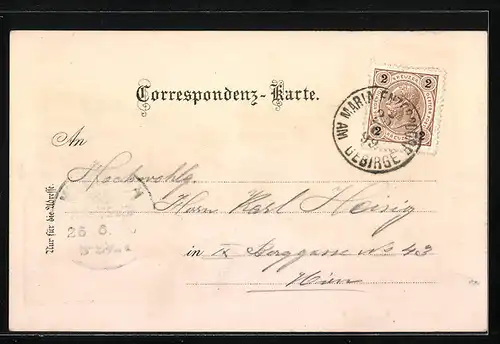 Correspondenz-Karte.
2 KREUZER 2
2 2
MARIA ENZERSDORF
AM GEBIRGE
An
Hochwohlg.
Herrn Karl Heisig
in IX Berggasse No 43
Wien
Nur für die Adresse.
26 6